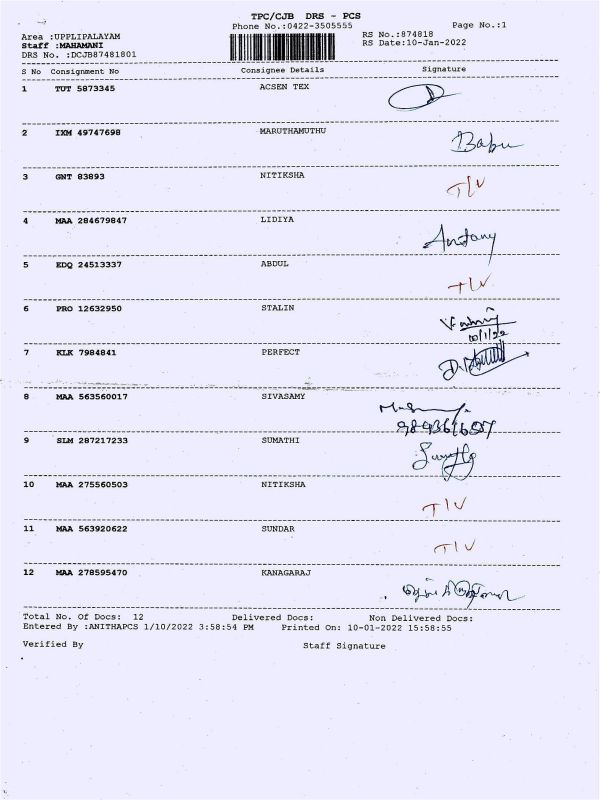 TPC/CJB DRS - PCS
Phone No.:0422-3505555
Page No.:1
Area :UPPLIPALAYAM
RS No.:874818
Staff :MAHAMANI
RS Date:10-Jan-2022
DRS No. :DCJB87481801
S No Consignment No Consignee Details Signature
1 TUT 5873345 ACSEN TEX
2 IXM 49747698 MARUTHAMUTHU Babu
3 GNT 83893 NITIKSHA T/V
4 MAA 284679847 LIDIYA Antony
5 EDQ 24513337 ABDUL T/V
6 PRO 12632950 STALIN
10/1/22
7 KLK 7984841 PERFECT
8 MAA 563560017 SIVASAMY
9 SLM 287217233 SUMATHI
10 MAA 275560503 NITIKSHA T/V
11 MAA 563920622 SUNDAR T/V
12 MAA 278595470 KANAGARAJ
Total No. Of Docs: 12 Delivered Docs: Non Delivered Docs:
Entered By :ANITHAPCS 1/10/2022 3:58:54 PM Printed On: 10-01-2022 15:58:55
Verified By Staff Signature